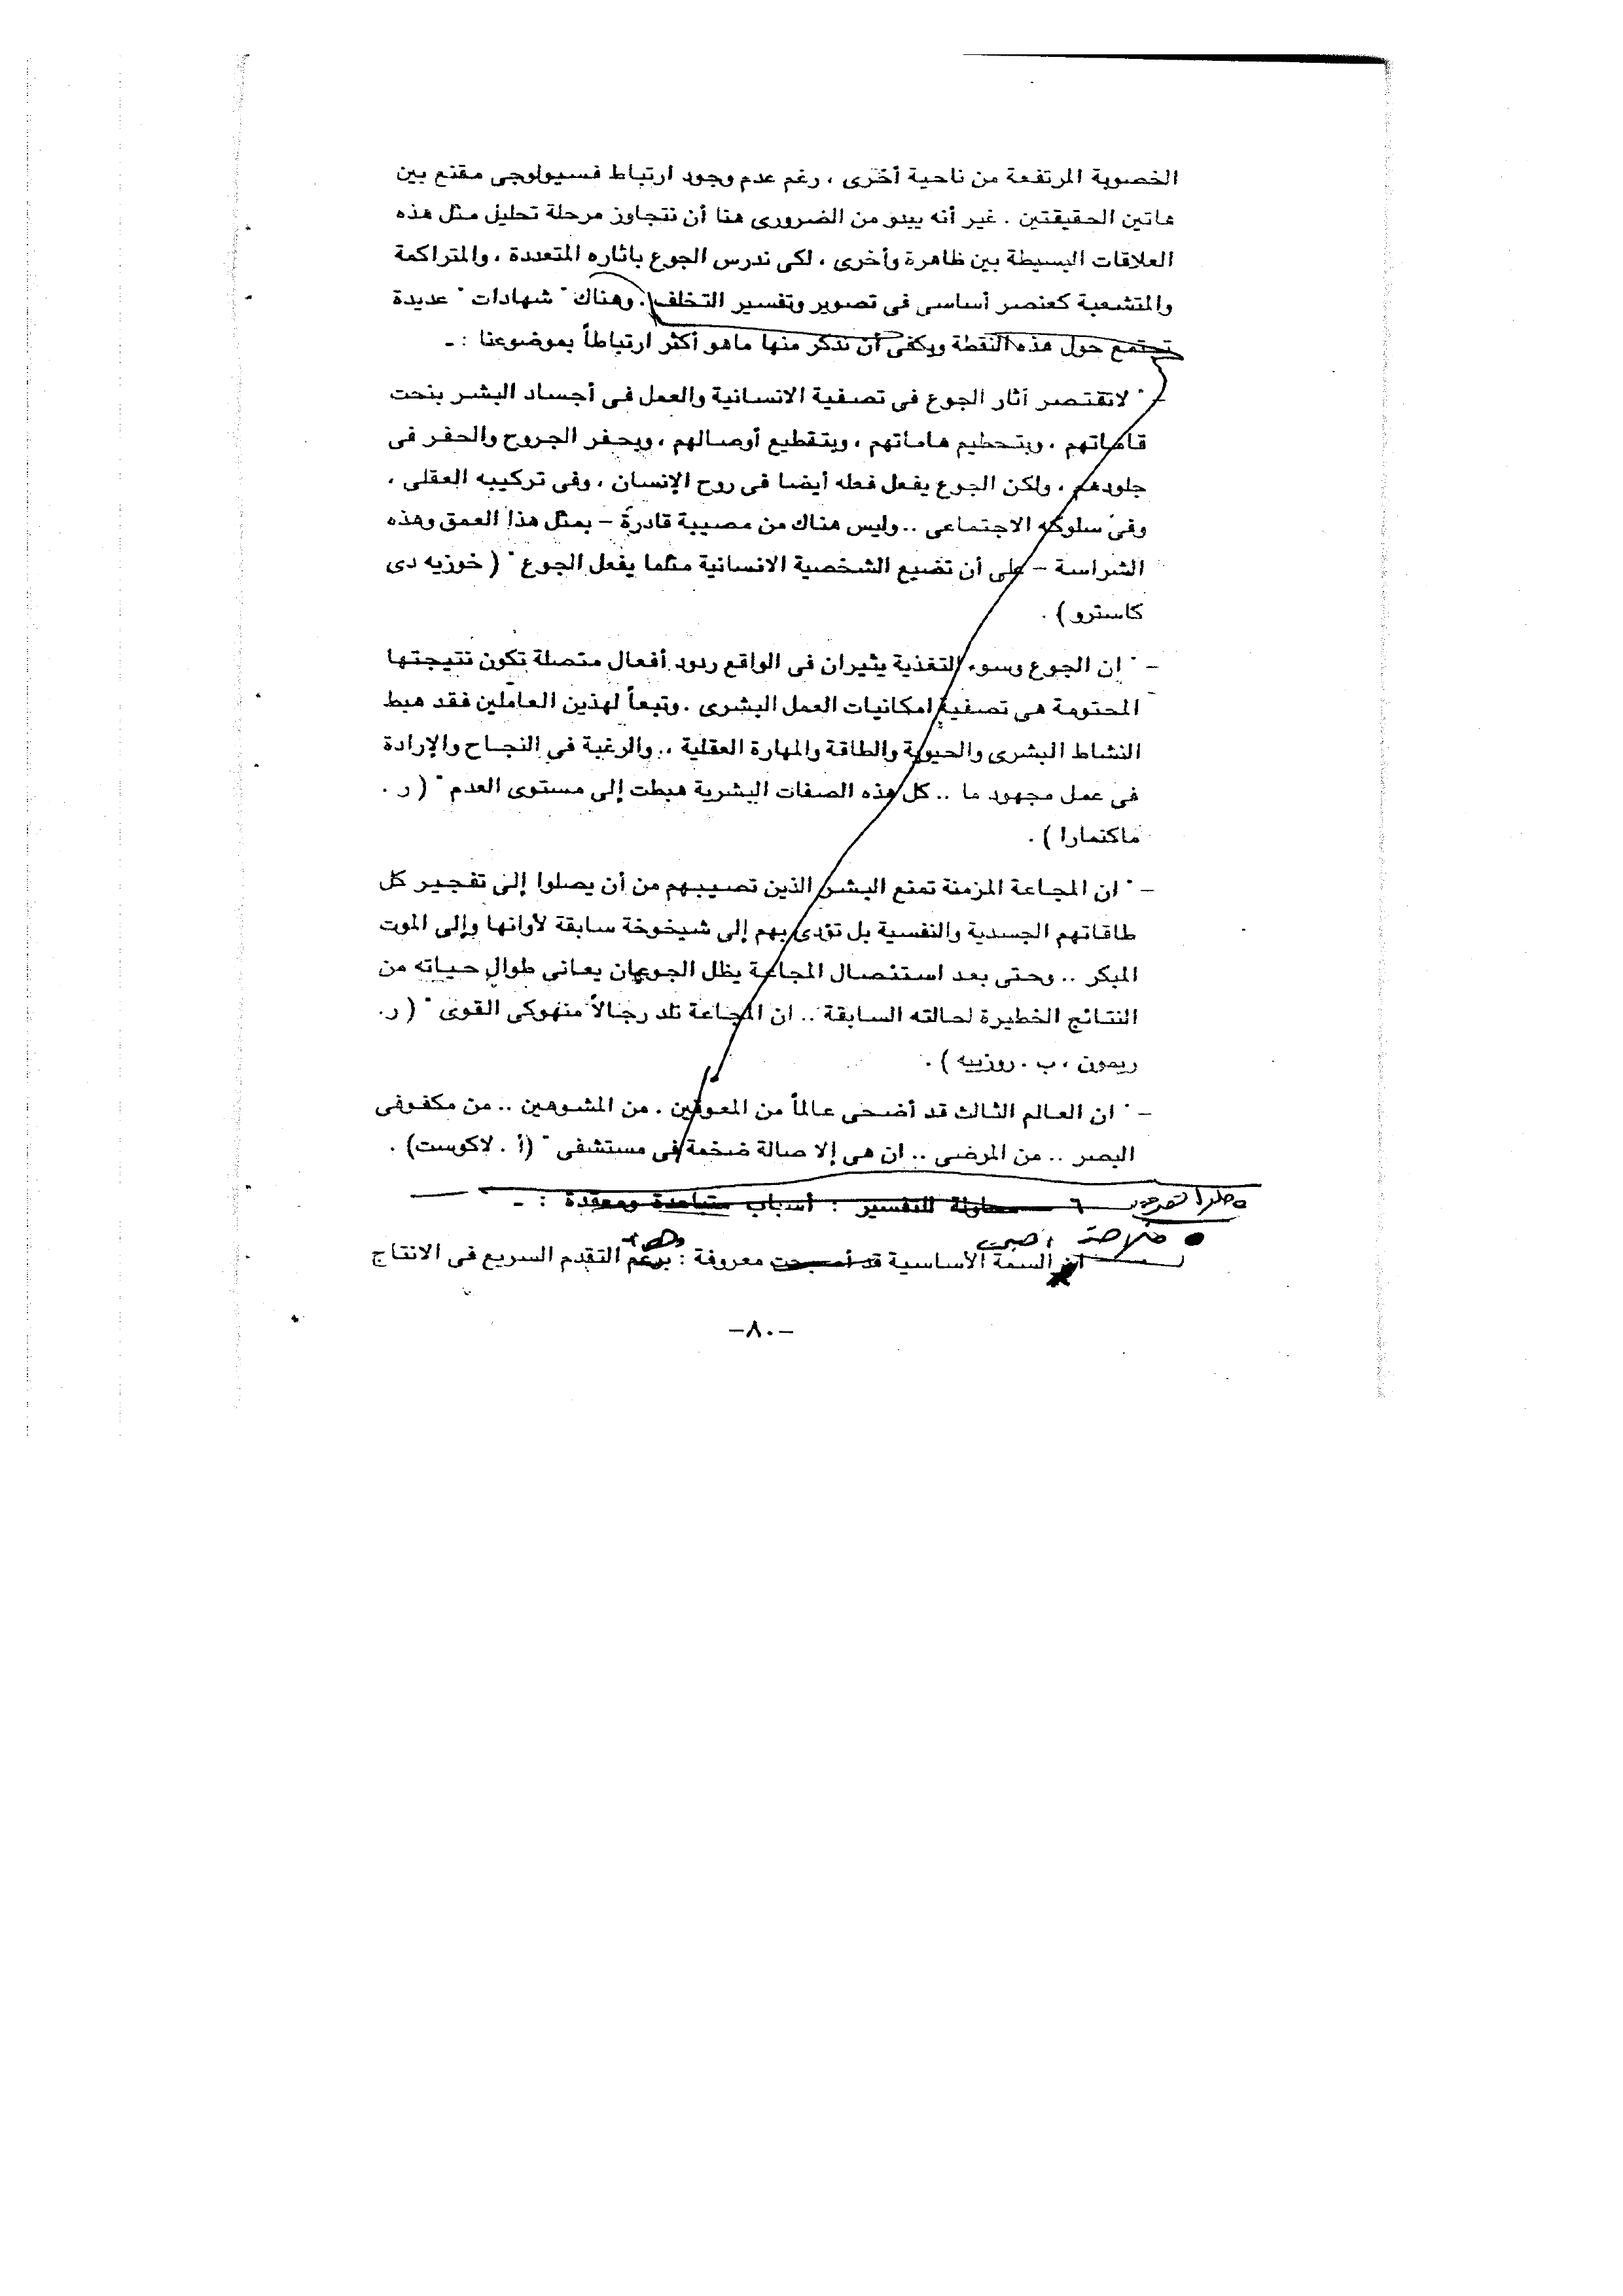 الخصوبة المرتفعة من ناحية أخرى ، رغم عدم وجود ارتباط فسيولوجى مقنع بين
هاتين الحقيقتين . غير أنه يبدو من الضرورى هنا أن نتجاوز مرحلة تحليل مثل هذه
العلاقات البسيطة بين ظاهرة وأخرى ، لكى ندرس الجوع باثاره المتعددة ، والمتراكمة
والمتشعبة كعنصر أساسى فى تصوير وتفسير التخلف . وهناك " شهادات " عديدة
تجتمع حول هذه النقطة ويكفى أن نذكر منها ماهو أكثر ارتباطاً بموضوعنا : ـ
– " لاتقتصر آثار الجوع فى تصفية الانسانية والعمل فى أجساد البشر بنحت
قاماتهم ، وبتحطيم هاماتهم ، وبتقطيع أوصالهم ، وبحفر الجروح والحفر فى
جلودهم ، ولكن الجوع يفعل فعله أيضا فى روح الإنسان ، وفى تركيبه العقلى ،
وفى سلوكه الاجتماعى .. وليس هناك من مصيبة قادرة – بمثل هذا العمق وهذه
الشراسة – على أن تضيع الشخصية الانسانية مثلما يفعل الجوع " ( خوزيه دى
كاسترو ) .
– " ان الجوع وسوء التغذية يثيران فى الواقع ردود أفعال متصلة تكون نتيجتها
المحتومة هى تصفية امكانيات العمل البشرى . وتبعاً لهذين العاملين فقد هبط
النشاط البشرى والحيوية والطاقة والمهارة العقلية .. والرغبة في النجاح والإرادة
فى عمل مجهود ما .. كل هذه الصفات البشرية هبطت إلى مستوى العدم " ( ر .
ماكنمارا ) .
– " ان المجاعة المزمنة تمنع البشر الذين تصيبهم من أن يصلوا إلى تفجير كل
طاقاتهم الجسدية والنفسية بل تؤدى بهم إلى شيخوخة سابقة لأوانها وإلى الموت
المبكر .. وحتى بعد استئصال المجاعة يظل الجوعان يعانى طوال حياته من
النتائج الخطيرة لحالته السابقة .. ان المجاعة تلد رجالاً منهوكى القوى " ( ر.
ريمون ، ب . روزييه ) .
– " ان العالم الثالث قد أضحى عالماً من المعوقين . من المشوهين .. من مكفوفى
البصر .. من المرضى .. ان هى إلا صالة ضخمة فى مستشفى " (أ . لاكوست) .
٦ محاولة للتفسير : أسباب متباعدة ومعقدة : ـ
أصبحت
ان السمة الأساسية قد أصبحت معروفة : برغم التقدم السريع فى الانتاج
–٨٠–